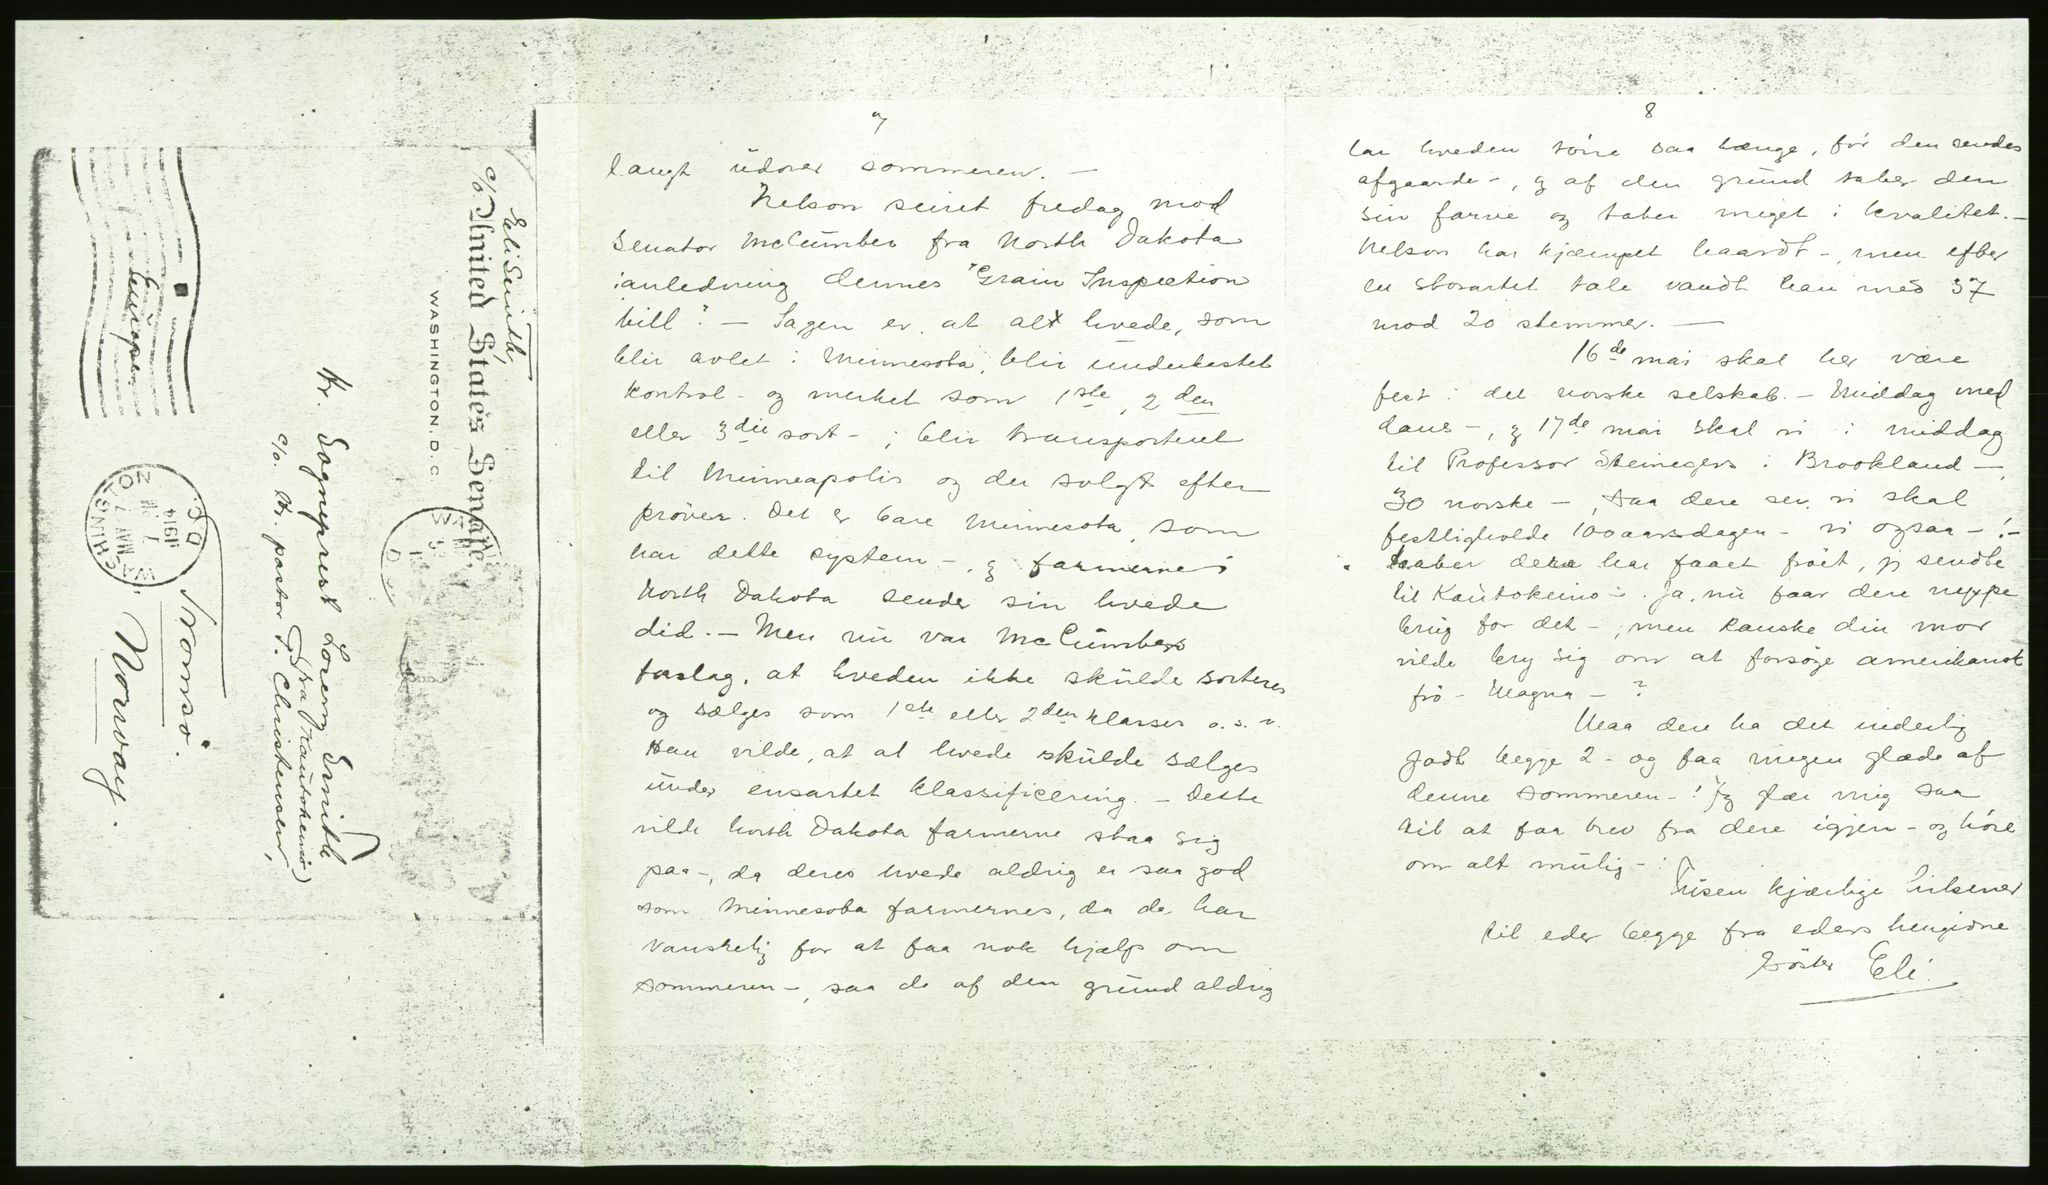 Eli Smith,
c/o. United States Senate,
WASHINGTON, D.C.
WASHINGTON
D.C.
MAY 7
1914
Europe.
Hr. Sogneprest Lorenz Smith
(fra Kautokeino)
c/o. Hr. pastor P. Christensen,
Tromsø.
Norway.
7
langt udover sommeren. —
Nelson seiret fredag mod
Senator McCumber fra North Dakota
ianledning dennes "Grain Inspection
bill". — Sagen er, at alt hvede, som
blir avlet i Minnesota, blir underkastet
kontrol - og merket som 1ste, 2den
eller 3die sort - ; blir transporteret
til Minneapolis og der solgt efter
prøver. Det er bare Minnesota, som
har dette system -, og farmerne i
North Dakota sender sin hvede
did. — Men nu var McCumbers
forslag, at hveden ikke skulde sorteres
og sælges som 1ste eller 2den klasses o.s.v.
Han vilde, at al hvede skulde sælges
under ensartet klassificering. — Dette
vilde North Dakota farmerne staa sig
paa -, da deres hvede aldrig er saa god
som Minnesota farmernes, da de har
vanskelig for at faa nok hjælp om
sommeren -, saa de af den grund aldrig
8
lar hveden tørre saa længe, før den sendes
afgaarde -, og af den grund taber den
sin farve og taber meget i kvalitet. —
Nelson har kjæmpet haardt -, men efter
en storartet tale vandt han med 37
mod 20 stemmer. —
16de mai skal her være
fest i det norske selskab. - Middag med
dans -, og 17de mai skal vi i middag
til Professor Steinegers i Brookland —,
30 norske -, Saa dere ser, vi skal
festligholde 100aarsdagen - vi ogsaa - ! -
Haaber dere har faaet frøet, jeg sendte
til Kautokeino -. Ja, nu faar dere neppe
brug for det -, men kanske din mor
vilde bry sig om at forsøge amerikansk
frø - Magna - ?
Maa dere ha det inderlig
godt begge 2 - og faa megen glæde af
denne sommeren - ! Jeg glær mig saa
til at faa brev fra dere igjen - og høre
om alt mulig - !
Tusen kjærlige hilsener
til eder begge fra eders hengivne
Søster Eli.